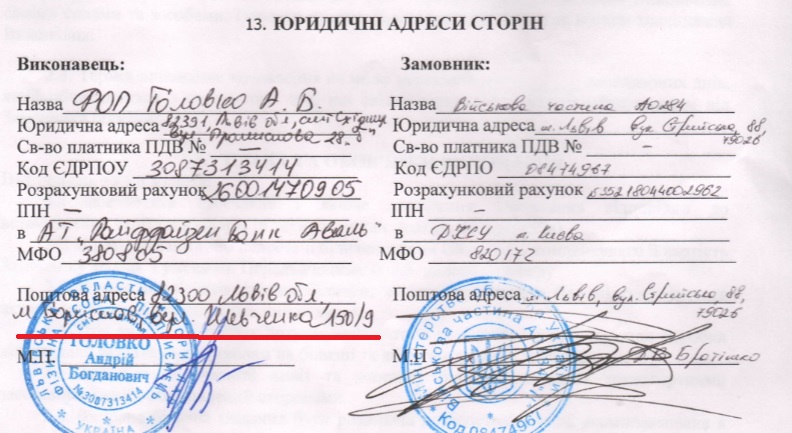 13. ЮРИДИЧНІ АДРЕСИ СТОРІН
Виконавець:
Назва ФОП Головко А. Б.
Юридична адреса 82391, Львів обл, смт Східниця
вул. Промислова 28
Св-во платника ПДВ № —
Код ЄДРПОУ 3087313414
Розрахунковий рахунок 26001470905
ІПН —
в АТ "Райффайзен Банк Аваль"
МФО 380805
Поштова адреса 82300 Львів обл,
м. Борислав, вул. Шевченка 150/9
М.П.
ГОЛОВКО
Андрій
Богданович
№3087313414
УКРАЇНА
Замовник:
Назва Військова частина А0284
Юридична адреса м. Львів вул. Стрийська, 88,
79026
Св-во платника ПДВ № —
Код ЄДРПО 08474967
Розрахунковий рахунок 35218044002962
ІПН —
в ДКСУ м. Києва
МФО 820172
Поштова адреса м. Львів, вул. Стрийська, 88,
79026
М.П
* Код 08474967 *